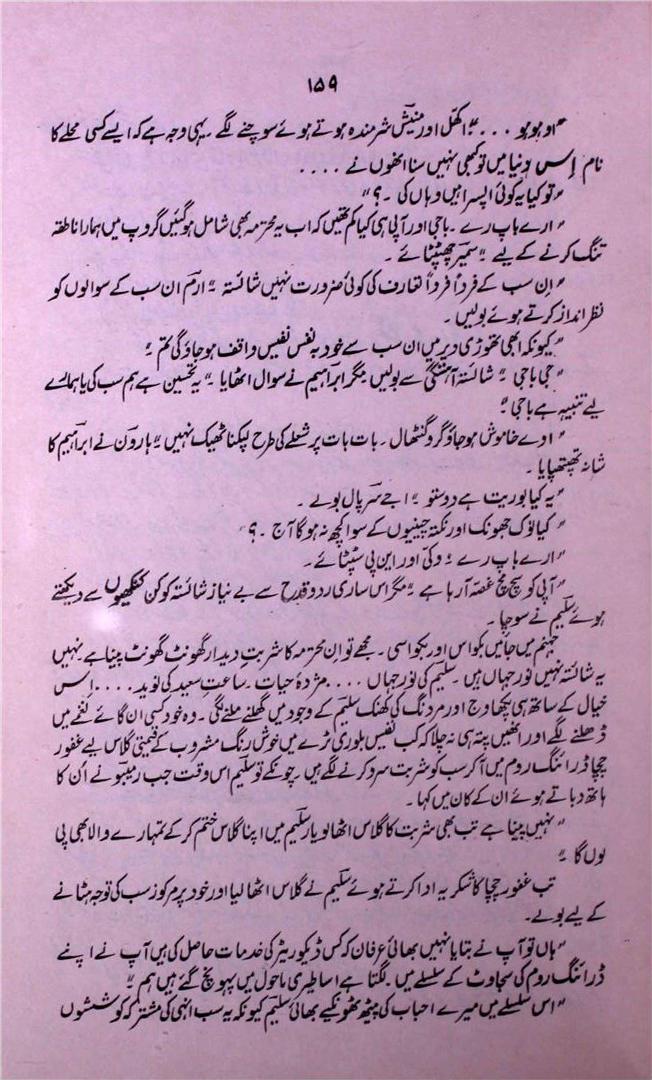 ۱۵۹
"اوہو ہو . . . ." اکمل اور منیش شرمندہ ہوتے ہوئے سوچنے لگے ۔ یہی وجہ ہے کہ ایسے کسی محلے کا
نام اِس دنیا میں تو کبھی نہیں سنا انھوں نے . . . .
"تو کیا یہ کوئی اپسرا ہیں وہاں کی ۔ ؟"
"ارے باپ رے ۔ باجی اور آپی ہی کیا کم تھیں کہ اب یہ محترمہ بھی شامل ہو گئیں گروپ میں ہمارا ناطقہ
تنگ کرنے کے لیے" سمیر چھٹپٹائے ۔
"اِن سب کے فرداً فرداً تعارف کی کوئی ضرورت نہیں شائستہ" ارم ان سب کے سوالوں کو
نظر انداز کرتے ہوئے بولیں ۔
"کیونکہ ابھی تھوڑی دیر میں ان سب سے خود بہ نفس نفیس واقف ہو جاؤ گی تم"
"جی باجی" شائستہ آہستگی سے بولیں مگر ابراہیم نے سوال اٹھایا ۔ "یہ تحسین ہے ہم سب کی یا ہمارے
لیے تنبیہ ہے باجی"
"ارے خاموش ہو جاؤ گرو گنٹھال ۔ بات بات پر شعلے کی طرح لپکنا ٹھیک نہیں" ہارون نے ابراہیم کا
شانہ تھپتھپایا ۔
"یہ کیا بوریت ہے دوستو" اجے سر پال بولے ۔
"کیا نوک جھونک اور نکتہ چینیوں کے سوا کچھ نہ ہوگا آج ۔ ؟"
"ارے باپ رے" وکی اور این پی سٹپٹائے ۔
"آپی کو سچ مچ غصہ آ رہا ہے" مگر اس ساری رد و قدح سے بے نیاز شائستہ کو کن کنکھیوں سے دیکھتے
ہوئے سلیم نے سوچا ۔
جہنم میں جائیں بکواس اور بکواسی ۔ مجھے تو اِن محترمہ کا شربت دیدار گھونٹ گھونٹ پینا ہے ۔ نہیں
یہ شائستہ نہیں نور جہاں ہیں ۔ سلیم کی نور جہاں . . . . مژدۂ حیات ۔ ساعتِ سعید کی نوید . . . . اِس
خیال کے ساتھ ہی پکھاوج اور مردنگ کی کھنک سلیم کے وجود میں گھلنے ملنے لگی ۔ وہ خود کسی ان گائے نغمے میں
ڈھلنے لگے اور انھیں پتہ ہی نہ چلا کہ کب نفیس بلوری ٹرے میں خوش رنگ مشروب کے قیمتی گلاس لیے غفور
چچا ڈرائنگ روم میں آ کر سب کو شربت سرو کرنے لگے ہیں ۔ چونکے تو سلیم اس وقت جب رمیبو نے اُن کا
ہاتھ دباتے ہوئے ان کے کان میں کہا ۔
"نہیں پینا ہے تب بھی شربت کا گلاس اٹھا لو یار سلیم میں اپنا گلاس ختم کر کے تمہارے والا بھی پی
لوں گا"
تب غفور چچا کا شکریہ ادا کرتے ہوئے سلیم نے گلاس اٹھا لیا اور خود پر مرکوز سب کی توجہ ہٹانے
کے لیے بولے ۔
"ہاں تو آپ نے بتایا نہیں بھائی عرفان کہ کس ڈیکوریٹر کی خدمات حاصل کی ہیں آپ نے اپنے
ڈرائنگ روم کی سجاوٹ کے سلسلے میں ۔ لگتا ہے اساطیری ماحول میں پہونچ گئے ہیں ہم"
"اس سلسلے میں میرے احباب کی پیٹھ ٹھونکیے بھائی سلیم کیونکہ یہ سب انہی کی مشترکہ کوششوں